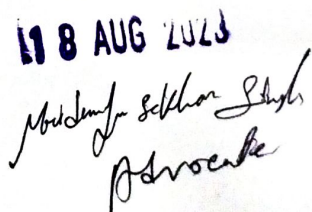 18 AUG 2023
Sekhar Singh
Advocate